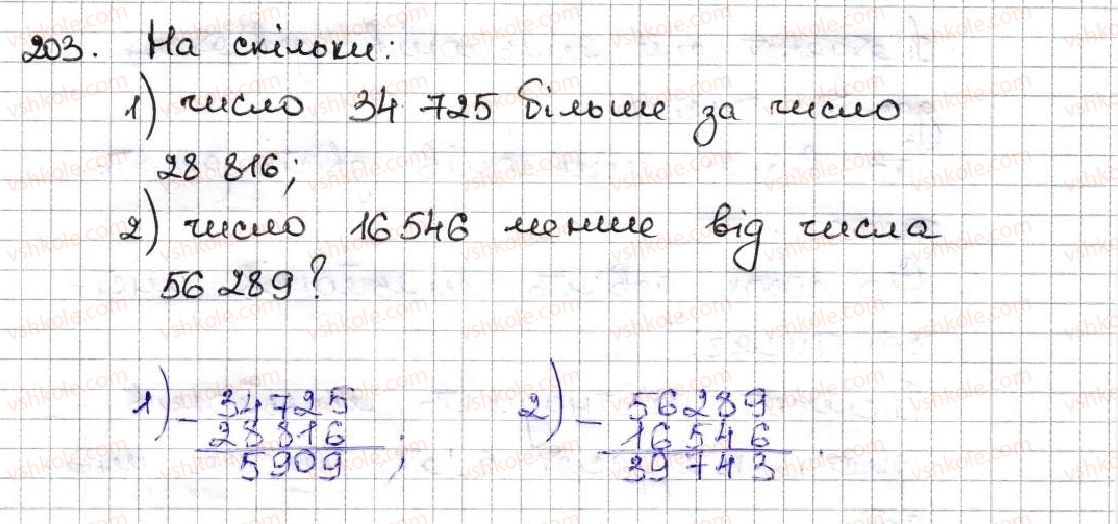 203. На скільки:
1) число 34 725 більше за число
28 816;
2) число 16 546 менше від числа
56 289?
1) - 34725
28816
5909 ;
2) - 56289
16546
39743 .